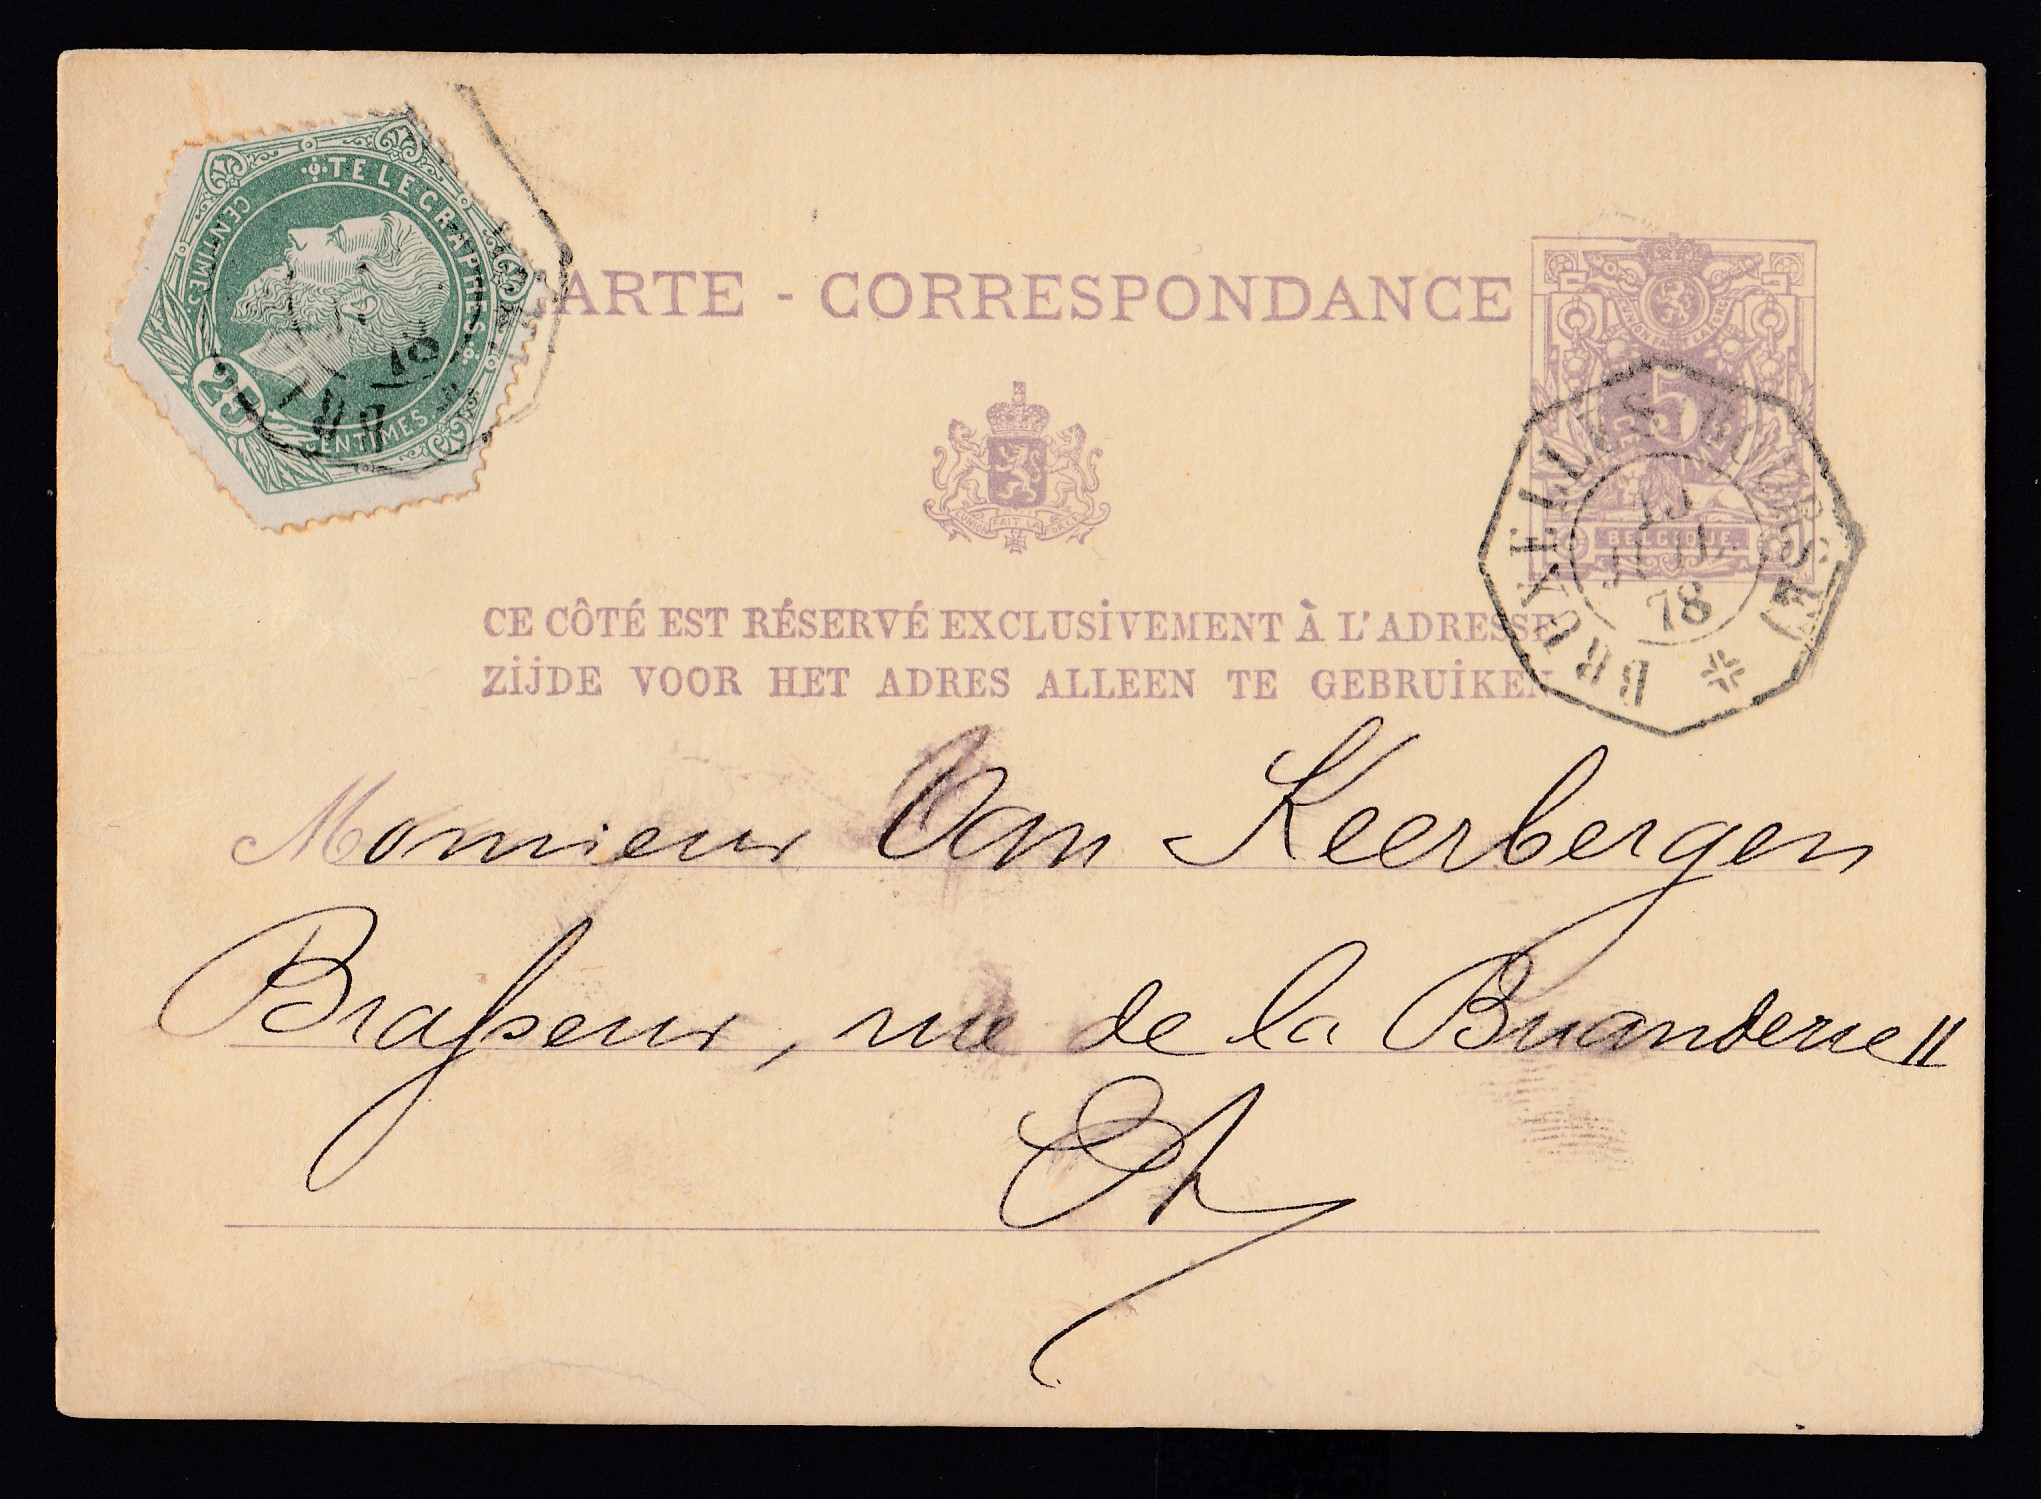 TELEGRAPHES
CENTIMES
CENTIMES
25
CARTE - CORRESPONDANCE
L'UNION FAIT LA FORCE
5
BELGIQUE
L'UNION FAIT LA FORCE
BRUXELLES (BOURSE)
JUIL
78
CE CÔTÉ EST RÉSERVÉ EXCLUSIVEMENT À L'ADRESSE
ZIJDE VOOR HET ADRES ALLEEN TE GEBRUIKEN
Monsieur Van Keerbergen
Brasseur, rue de la Buanderie 11